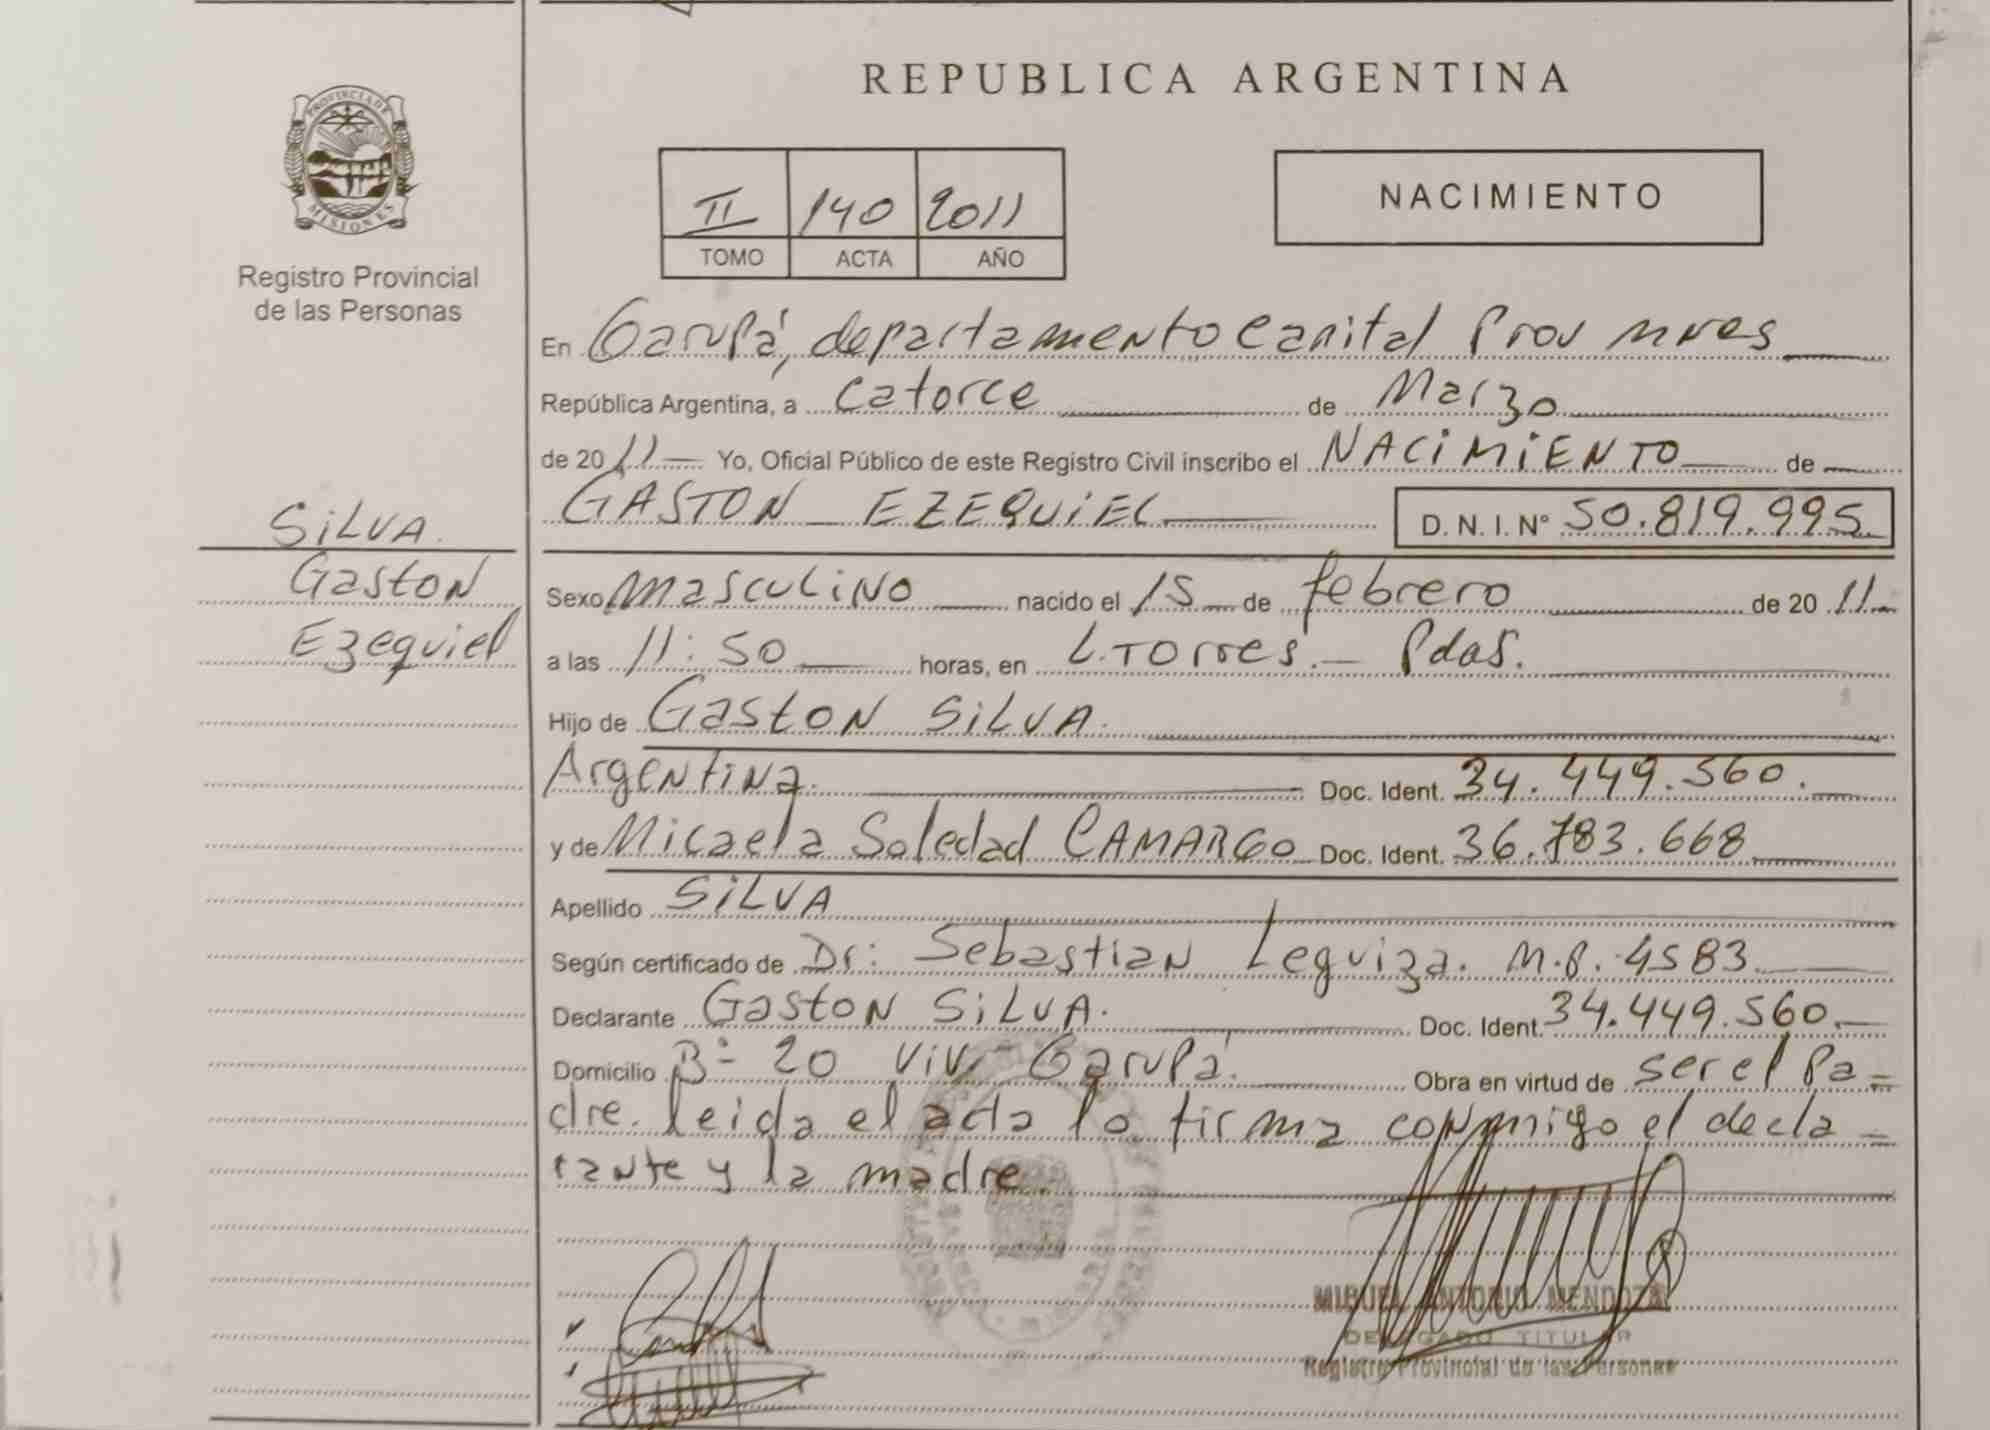 REPUBLICA ARGENTINA
PROVINCIA DE
MISIONES
Registro Provincial
de las Personas
II 140 2011
TOMO ACTA AÑO
NACIMIENTO
En Garupá, departamento Capital Prov Mnes
República Argentina, a catorce de Marzo
de 2011 Yo, Oficial Público de este Registro Civil inscribo el NACIMIENTO de
GASTON EZEQUIEL D. N. I. Nº 50.819.995
SILVA
Gaston
Ezequiel
Sexo masculino nacido el 15 de febrero de 2011
a las 11:50 horas, en L. Torres. - Pdas.
Hijo de Gaston SILVA.
Argentina. Doc. Ident. 34.449.560.
y de Micaela Soledad CAMARGO Doc. Ident. 36.783.668
Apellido SILVA
Según certificado de Dr: Sebastian Leguiza. M.P. 4583
Declarante Gaston SILVA. Doc. Ident. 34.449.560.
Domicilio Bº 20 Viv. Garupá. Obra en virtud de ser el Pa-
dre. leida el acta lo firma conmigo el decla-
rante y la madre.
MIGUEL ANTONIO MENDOZA
DELEGADO TITULAR
Registro Provincial de las Personas